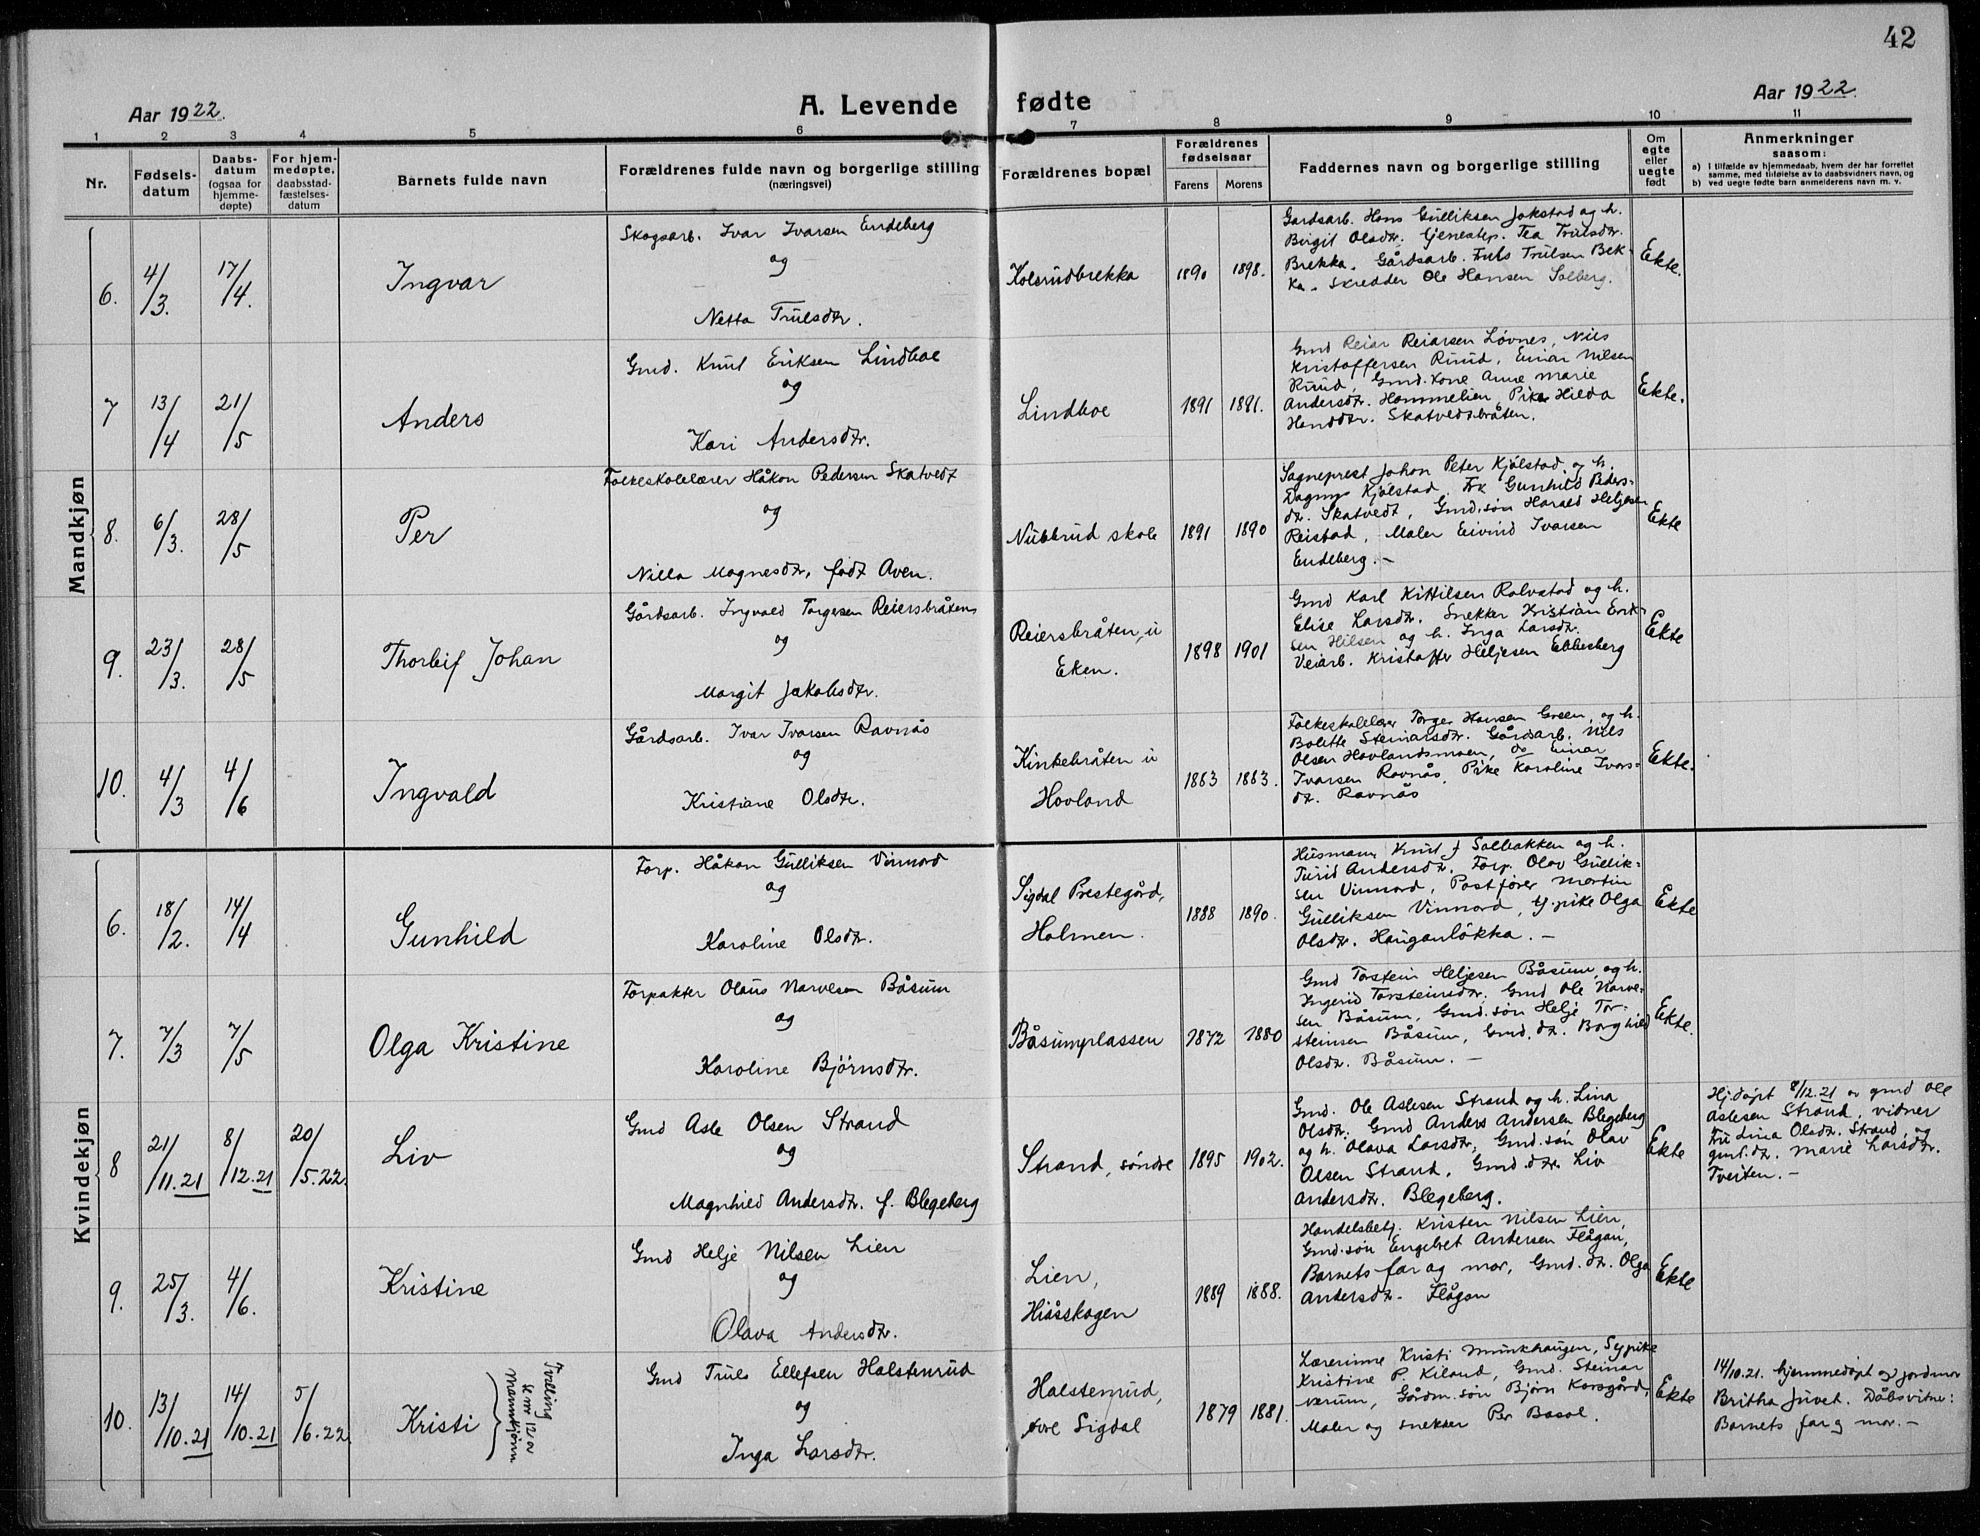 42
Aar 1922.
A. Levende fødte
Aar 1922.
1 2 3 4 5 6 7 8 9 10 11
Nr.
Fødsels-
datum
Daabs-
datum
(ogsaa for
hjemme-
døpte)
For hjem-
medøpte,
daabsstad-
fæstelses-
datum
Barnets fulde navn
Forældrenes fulde navn og borgerlige stilling
(næringsvei)
Forældrenes bopæl
Forældrenes
fødselsaar
Farens Morens
Faddernes navn og borgerlige stilling
Om
egte
eller
uegte
født
Anmerkninger
saasom:
a) I tilfælde av hjemmedaab, hvem der har forrettet
samme, med tilføielse av to daabsvidners navn, og
b) ved uegte fødte barn anmelderens navn m. v.
Mandkjøn
6. 4/3. 17/4. Ingvar
Skogsarb. Ivar Ivarsen Endeberg
og
Netta Trulsdtr.
Kolsrudbrekka 1890 1898.
Gardsarb. Hans Gulliksen Jokstad og h.
Birgit Olsdtr. Tea Trulsdtr.
Brekka. Gårdsarb. Truls Trulsen Bek-
ka. Skredder Ole Hansen Solberg.
Ekte.
7 13/4 21/5 Anders
Gmd. Knut Eriksen Lindboe
og
Kari Andersdtr.
Lindboe 1891 1881.
Gmd Reiar Reiarsen Løvnes, Nils
Kristoffersen Ruud, Einar Nilsen
Ruud, Gmd. kone Anne Marie
Andersdtr. Hommelien, Pike Hilda
Skatvedtbråten.
Ekte.
8. 6/3. 28/5 Per
Folkeskolelærer Håkon Pedersen Skatvedt
og
Nilla Magnesdtr, født Aven.
Nubbrud skole 1891 1890
Sogneprest Johan Peter Kjölstad og h.
Dagny Kjölstad, Frk Gunhild Peders-
dtr. Skatvedt, Gmd. søn Harald Heljesen
Reistad, Maler Eivind Ivarsen
Endeberg. -
Ekte
9. 23/3. 28/5 Thorleif Johan
Gårdsarb. Ingvald Torgersen Reiersbråten
og
Margit Jakobsdtr.
Reiersbråten, u
Eken. 1898 1901
Gmd Karl Kittilsen Ralvstad og h.
Elise Larsdtr. Snekker Kristian Erik-
sen Hilsen og h. Inga Larsdtr.
Veiarb. Kristoffer Heljesen Ebbesberg
Ekte
10. 4/3 4/6 Ingvald
Gårdsarb. Ivar Ivarsen Ravnås
og
Kristiane Olsdtr.
Kinkebråten u
Hovland 1883 1883.
Folkeskolelærer Torger Hansen Green, og h.
Bolette Steinarsdtr. Gårdsarb. Nils
Olsen Hovlandsmoen, do Einar
Ivarsen Ravnås, Pike Karoline Ivars-
dtr. Ravnås
Ekte.
Kvindekjøn
6. 18/2. 14/4 Gunhild
Forp. Håkon Gulliksen Vinnord
og
Karoline Olsdtr.
Sigdal Prestegård,
Holmen. 1888 1890.
Husmann Knut J Solbakken og h.
Turid Andersdtr. Forp. Olav Gullik-
sen Vinnord, Postfører Martin
Gulliksen Vinnord, Tj. pike Olga
Olsdtr. Hauganløkka. -
Ekte
7. 7/3 7/5 Olga Kristine
Forpakter Olaus Narvesen Båsum
og
Karoline Bjørnsdtr.
Båsumplassen 1872 1880
Gmd Torstein Heljesen Båsum, og h.
Ingerid Torsteinsdtr, Gmd Ole Narve-
sen Båsum, Gmd. søn Helje Tor-
steinsen Båsum, Gmd. dtr. Borghild
Olsdtr. Båsum. -
Ekte.
8 21/11.21 8/12.21 20/5.22 Liv
Gmd Asle Olsen Strand
og
Magnhild Andersdtr. f. Blegeberg
Strand, søndre 1895 1902.
Gmd. Ole Aslesen Strand og h. Lina
Olsdtr. Gmd Anders Andersen Blegeberg
og h. Olava Larsdtr, Gmd. søn Olav
Olsen Strand, Gmd. dtr. Liv
Andersdtr. Blegeberg.
Ekte
Hj. døpt 8/12.21 av gmd Ole
Aslesen Strand, vidner
fru Lina Olsdtr. Strand, og
gmd. dtr. Marie Larsdtr.
Tveiten. -
9. 25/3. 4/6. Kristine
Gmd Helje Nilsen Lien
og
Olava Andersdtr.
Lien,
Hiåsskogen 1889 1888.
Handelsbetj. Kristen Nilsen Lien,
Gmd. søn Engebret Andersen Flågan,
Barnets far og mor, Gmd. dtr. Olga
Andersdtr. Flågan
Ekte
10. 13/10.21 14/10.21 5/6.22. Kristi
Tvilling
se nr 12a
Mannkjønn
Gmd Truls Ellefsen Halstenrud
og
Inga Larsdtr.
Halstenrud,
øvre Sigdal 1879 1881.
Lærerinne Kristi Munkhaugen, Sypike
Kristine P. Kiland, Gmd. Steinar
Nerum, Gårdm. søn Bjørn Korsgård,
Maler og snekker Per Basol.
Ekte
14/10.21. hjemmedøpt av jordmor
Britha Juvet. Dåbsvitne:
Barnets far og mor. -